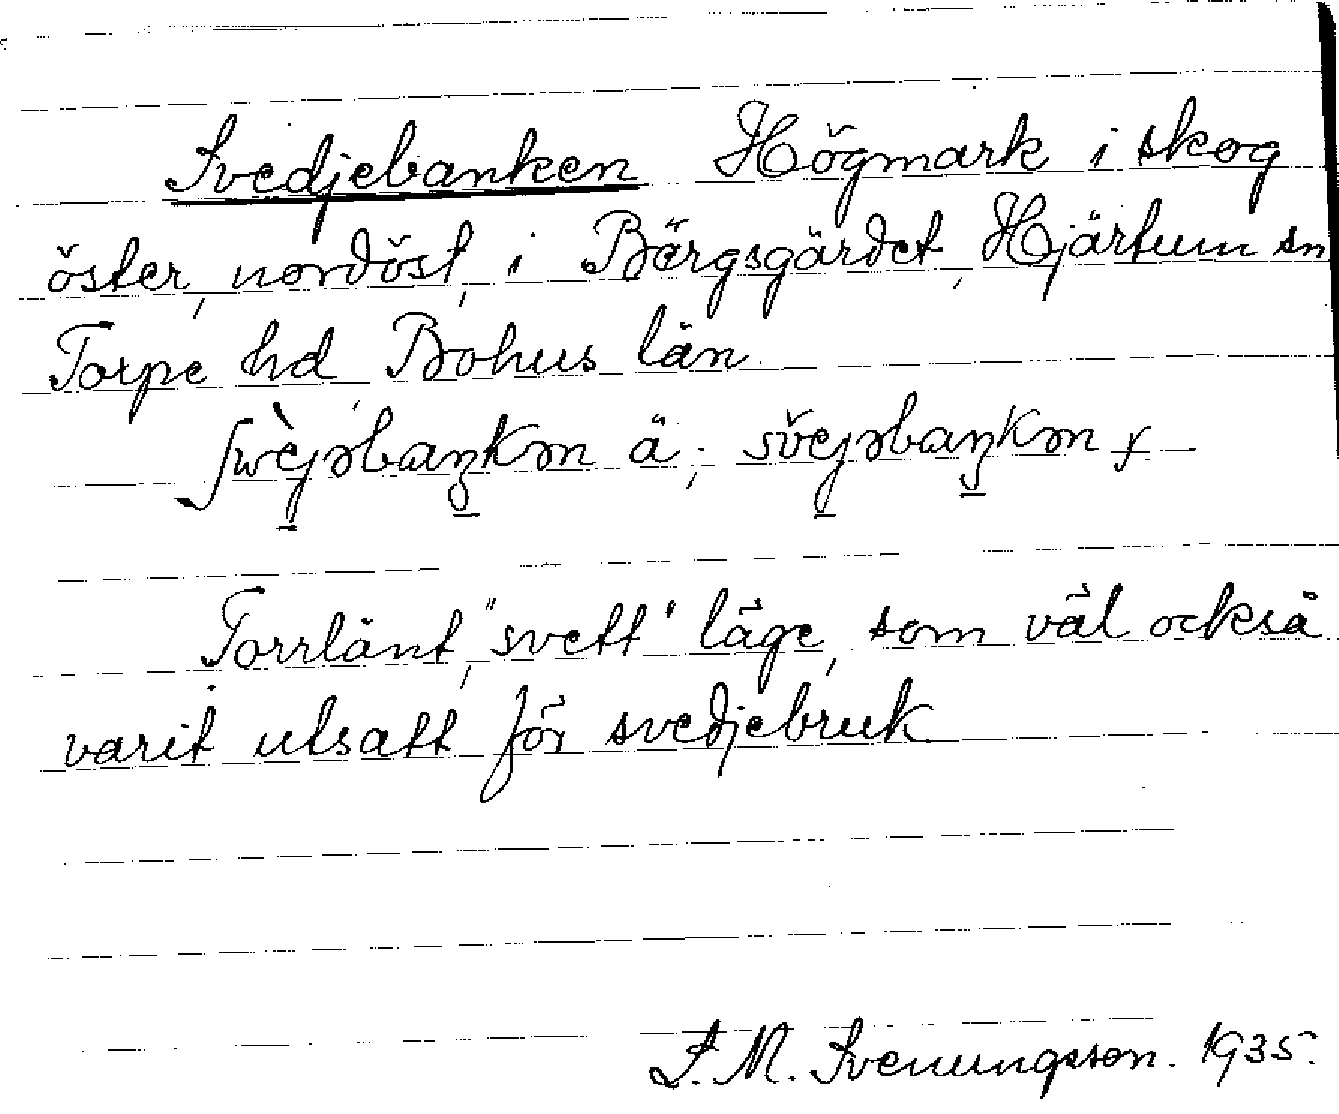 Svedjebanken Högmark i skog
öster, nordöst, i Bärgsgärdet, Hjärtum sn
Torpe hd, Bohus län
ä; y
Torrlänt, "svett" läge, som väl också
varit utsatt för svedjebruk
S. M. Svenungsson. 1935.